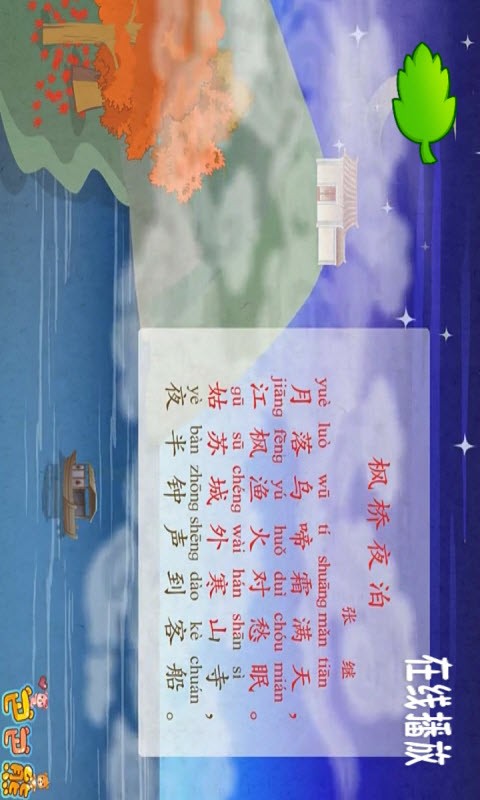 枫桥夜泊
张继
yuè luò wū tí shuāng mǎn tiān
月落乌啼霜满天，
jiāng fēng yú huǒ duì chóu mián
江枫渔火对愁眠。
gū sū chéng wài hán shān sì
姑苏城外寒山寺，
yè bàn zhōng shēng dào kè chuán
夜半钟声到客船。
在线播放
巴巴熊